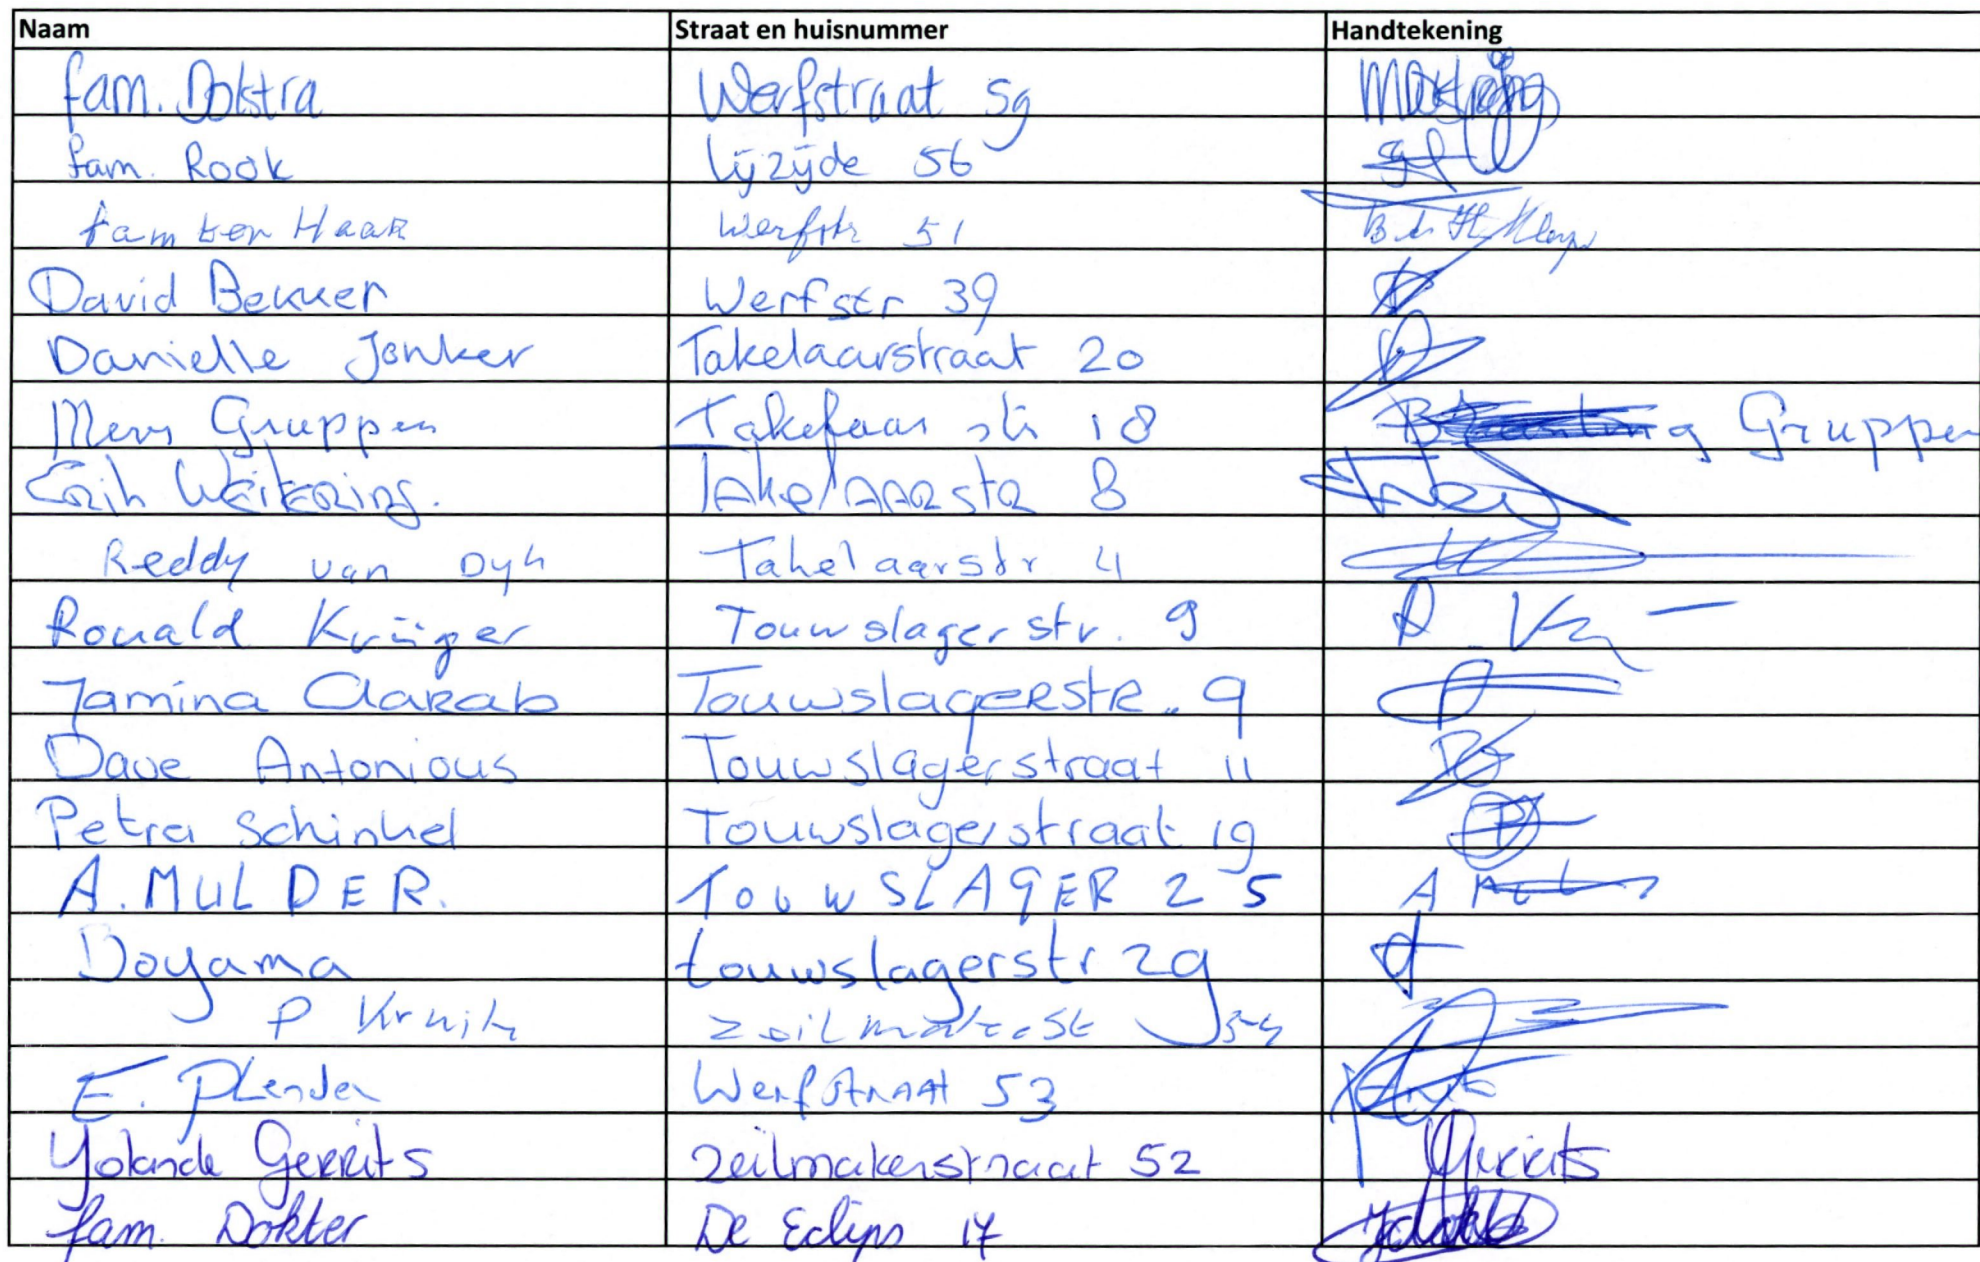 Naam Straat en huisnummer Handtekening
fam. Dokstra Werfstraat 59
fam. Rook Lijzijde 56
fam ter Haar Werfstr 51
David Bekker Werfstr 39
Danielle Jonker Takelaarstraat 20
Gruppen Takelaar str 18 Gruppen
Takelaarstr 8
Reddy van Dyk Takelaarstr 4
Ronald Krüger Touwslagerstr. 9
Jamina Aarab Touwslagerstr. 9
Dave Antonious Touwslagerstraat 11
Petra Schinkel Touwslagerstraat 19
A. MULDER. TOUWSLAGER 25 A
Boyama touwslagerstr 29
P Kruik
E. Plender Werfstraat 53
Yolande Gerrits Zeilmakerstraat 52 Gerrits
fam. Dokter De Eclips 17